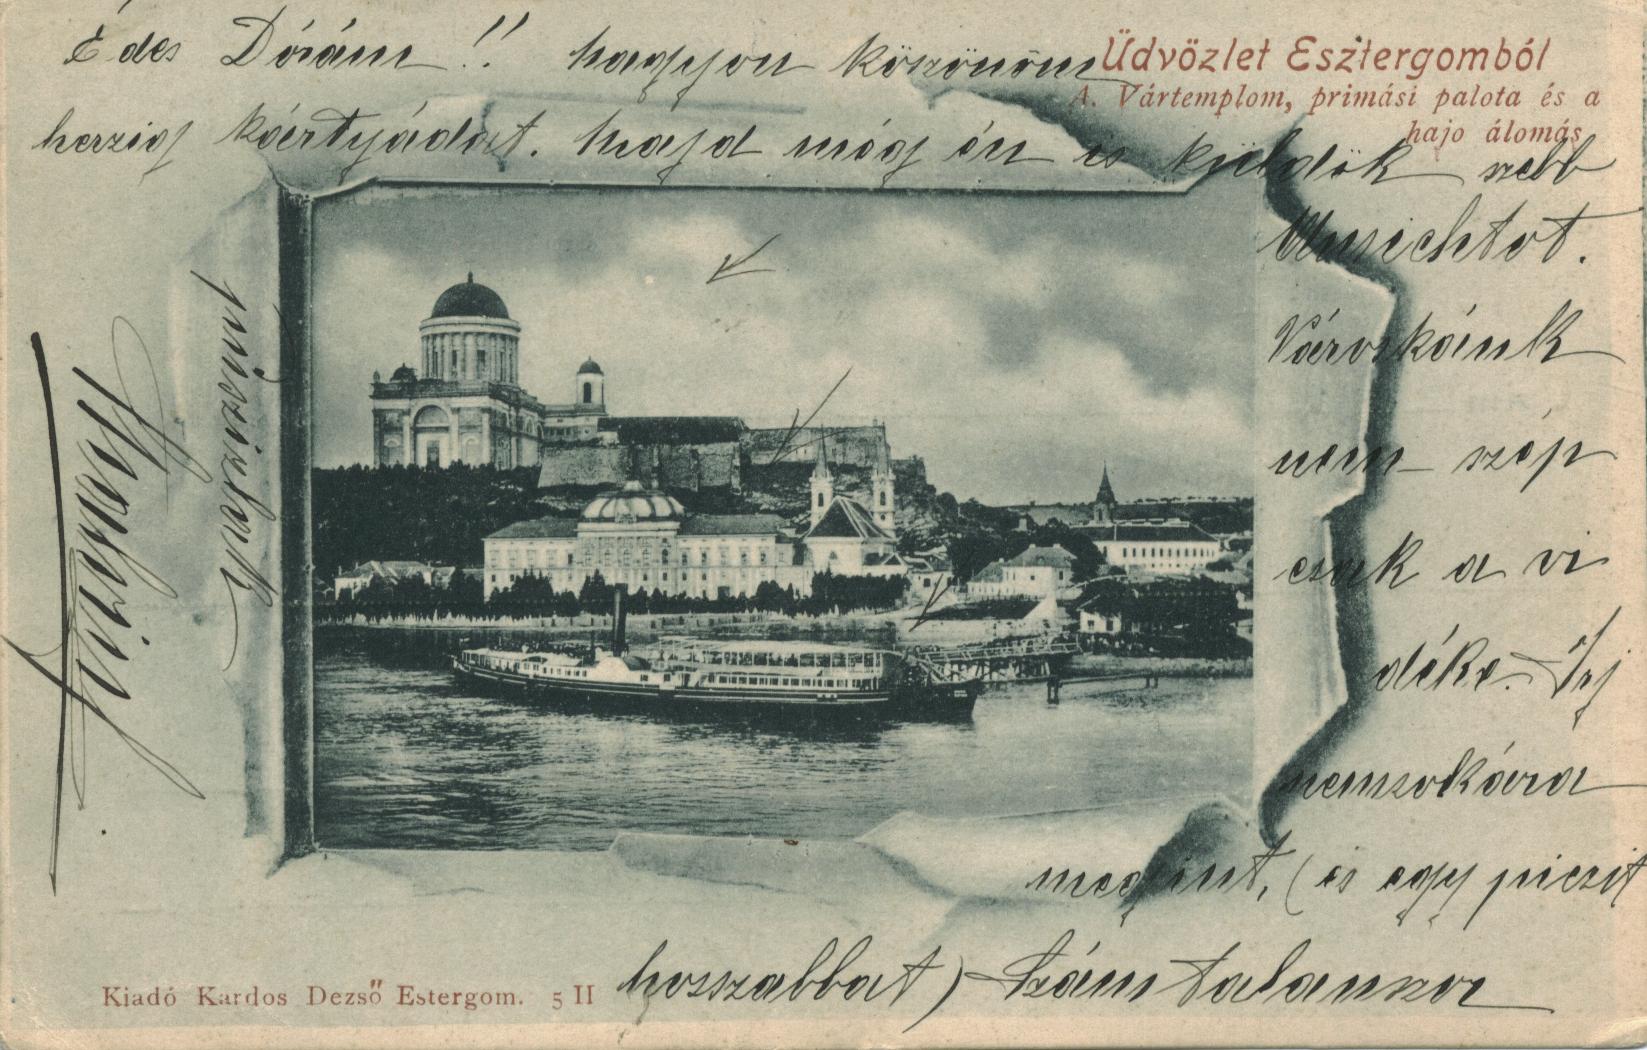 Üdvözlet Esztergomból
A. Vártemplom, primási palota és a
hajo álomás
Édes Dórám!! nagyon köszönöm
herzig kártyádat. majd még én is küldök szebb
Városkánk
nem szép
csak a vi
déke. Irj
nemsokára
megint, (és egy piczit
hosszabbat) Számtalanszor
Kiadó Kardos Dezső Estergom. 5 II